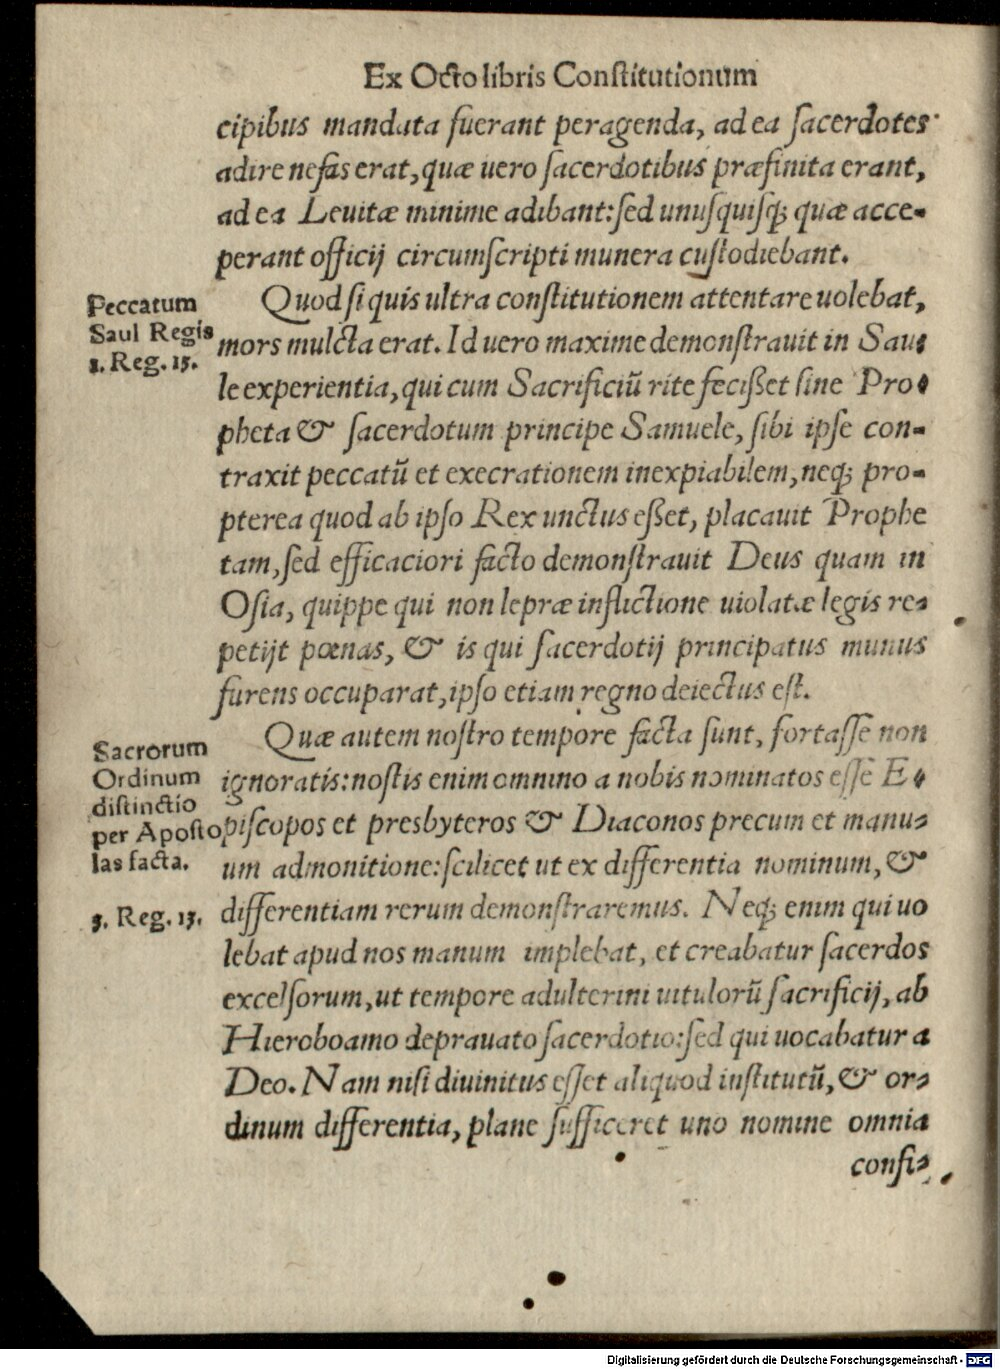 Ex Octo libris Constitutionum
cipibus mandata fuerant peragenda, ad ea sacerdotes
adire nefas erat, quæ uero sacerdotibus præfinita erant,
ad ea Leuitæ minime adibant: sed unusquisq; quæ acce-
perant officij circumscripti munera custodiebant.
Peccatum
Saul Regis
1. Reg. 15.
Quod si quis ultra constitutionem attentare uolebat,
mors mulcta erat. Id uero maxime demonstrauit in Sau-
le experientia, qui cum Sacrificiũ rite fecißet sine Pro-
pheta & sacerdotum principe Samuele, sibi ipse con-
traxit peccatũ et execrationem inexpiabilem, neq; pro-
pterea quod ab ipso Rex unctus eßet, placauit Prophe
tam, sed efficaciori facto demonstrauit Deus quam in
Osia, quippe qui non lepræ inflictione uiolatæ legis re-
petijt pœnas, & is qui sacerdotij principatus munus
furens occuparat, ipso etiam regno deiectus est.
Sacrorum
Ordinum
distinctio
per Aposto
las facta.
3. Reg. 13.
Quæ autem nostro tempore facta sunt, fortasse non
ignoratis: nostis enim omnino a nobis nominatos esse E-
piscopos et presbyteros & Diaconos precum et manu-
um admonitione: scilicet ut ex differentia nominum, &
differentiam rerum demonstraremus. Neq; enim qui uo
lebat apud nos manum implebat, et creabatur sacerdos
excelsorum, ut tempore adulterini uitulorũ sacrificij, ab
Hieroboamo deprauato sacerdotio: sed qui uocabatur a
Deo. Nam nisi diuinitus esset aliquod institutũ, & or-
dinum differentia, plane sufficeret uno nomine omnia
confi-
Digitalisierung gefördert durch die Deutsche Forschungsgemeinschaft - DFG